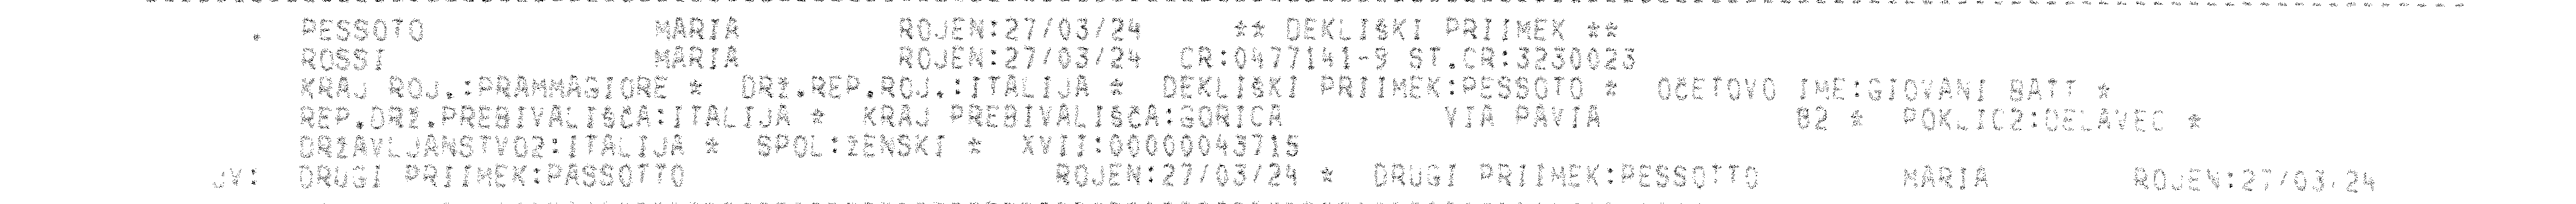 . PESSOTO MARIA ROJEN:27/03/24 ** DEKLIŠKI PRIIMEK **
ROSSI MARIA ROJEN:27/03/24 CR:0477141-9 ST.CR:3230023
KRAJ ROJ.:PRAMMAGIORE * DRŽ.REP.ROJ.:ITALIJA * DEKLIŠKI PRIIMEK:PESSOTO * OČETOVO IME:GIOVANI BATT *
REP.DRŽ.PREBIVALIŠČA:ITALIJA * KRAJ PREBIVALIŠČA:GORICA VIA PAVIA 82 * POKLIC2:DELAVEC *
DRŽAVLJANSTVO2:ITALIJA * SPOL:ŽENSKI * XVII:00000043715
JV: DRUGI PRIIMEK:PASSOTTO ROJEN:27/03/24 * DRUGI PRIIMEK:PESSOTTO MARIA ROJEN:27/03/24